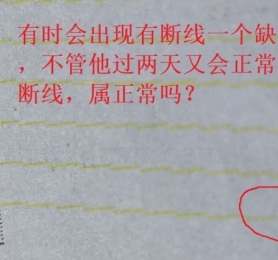 有时会出现有断线一个缺
，不管他过两天又会正常
断线，属正常吗？